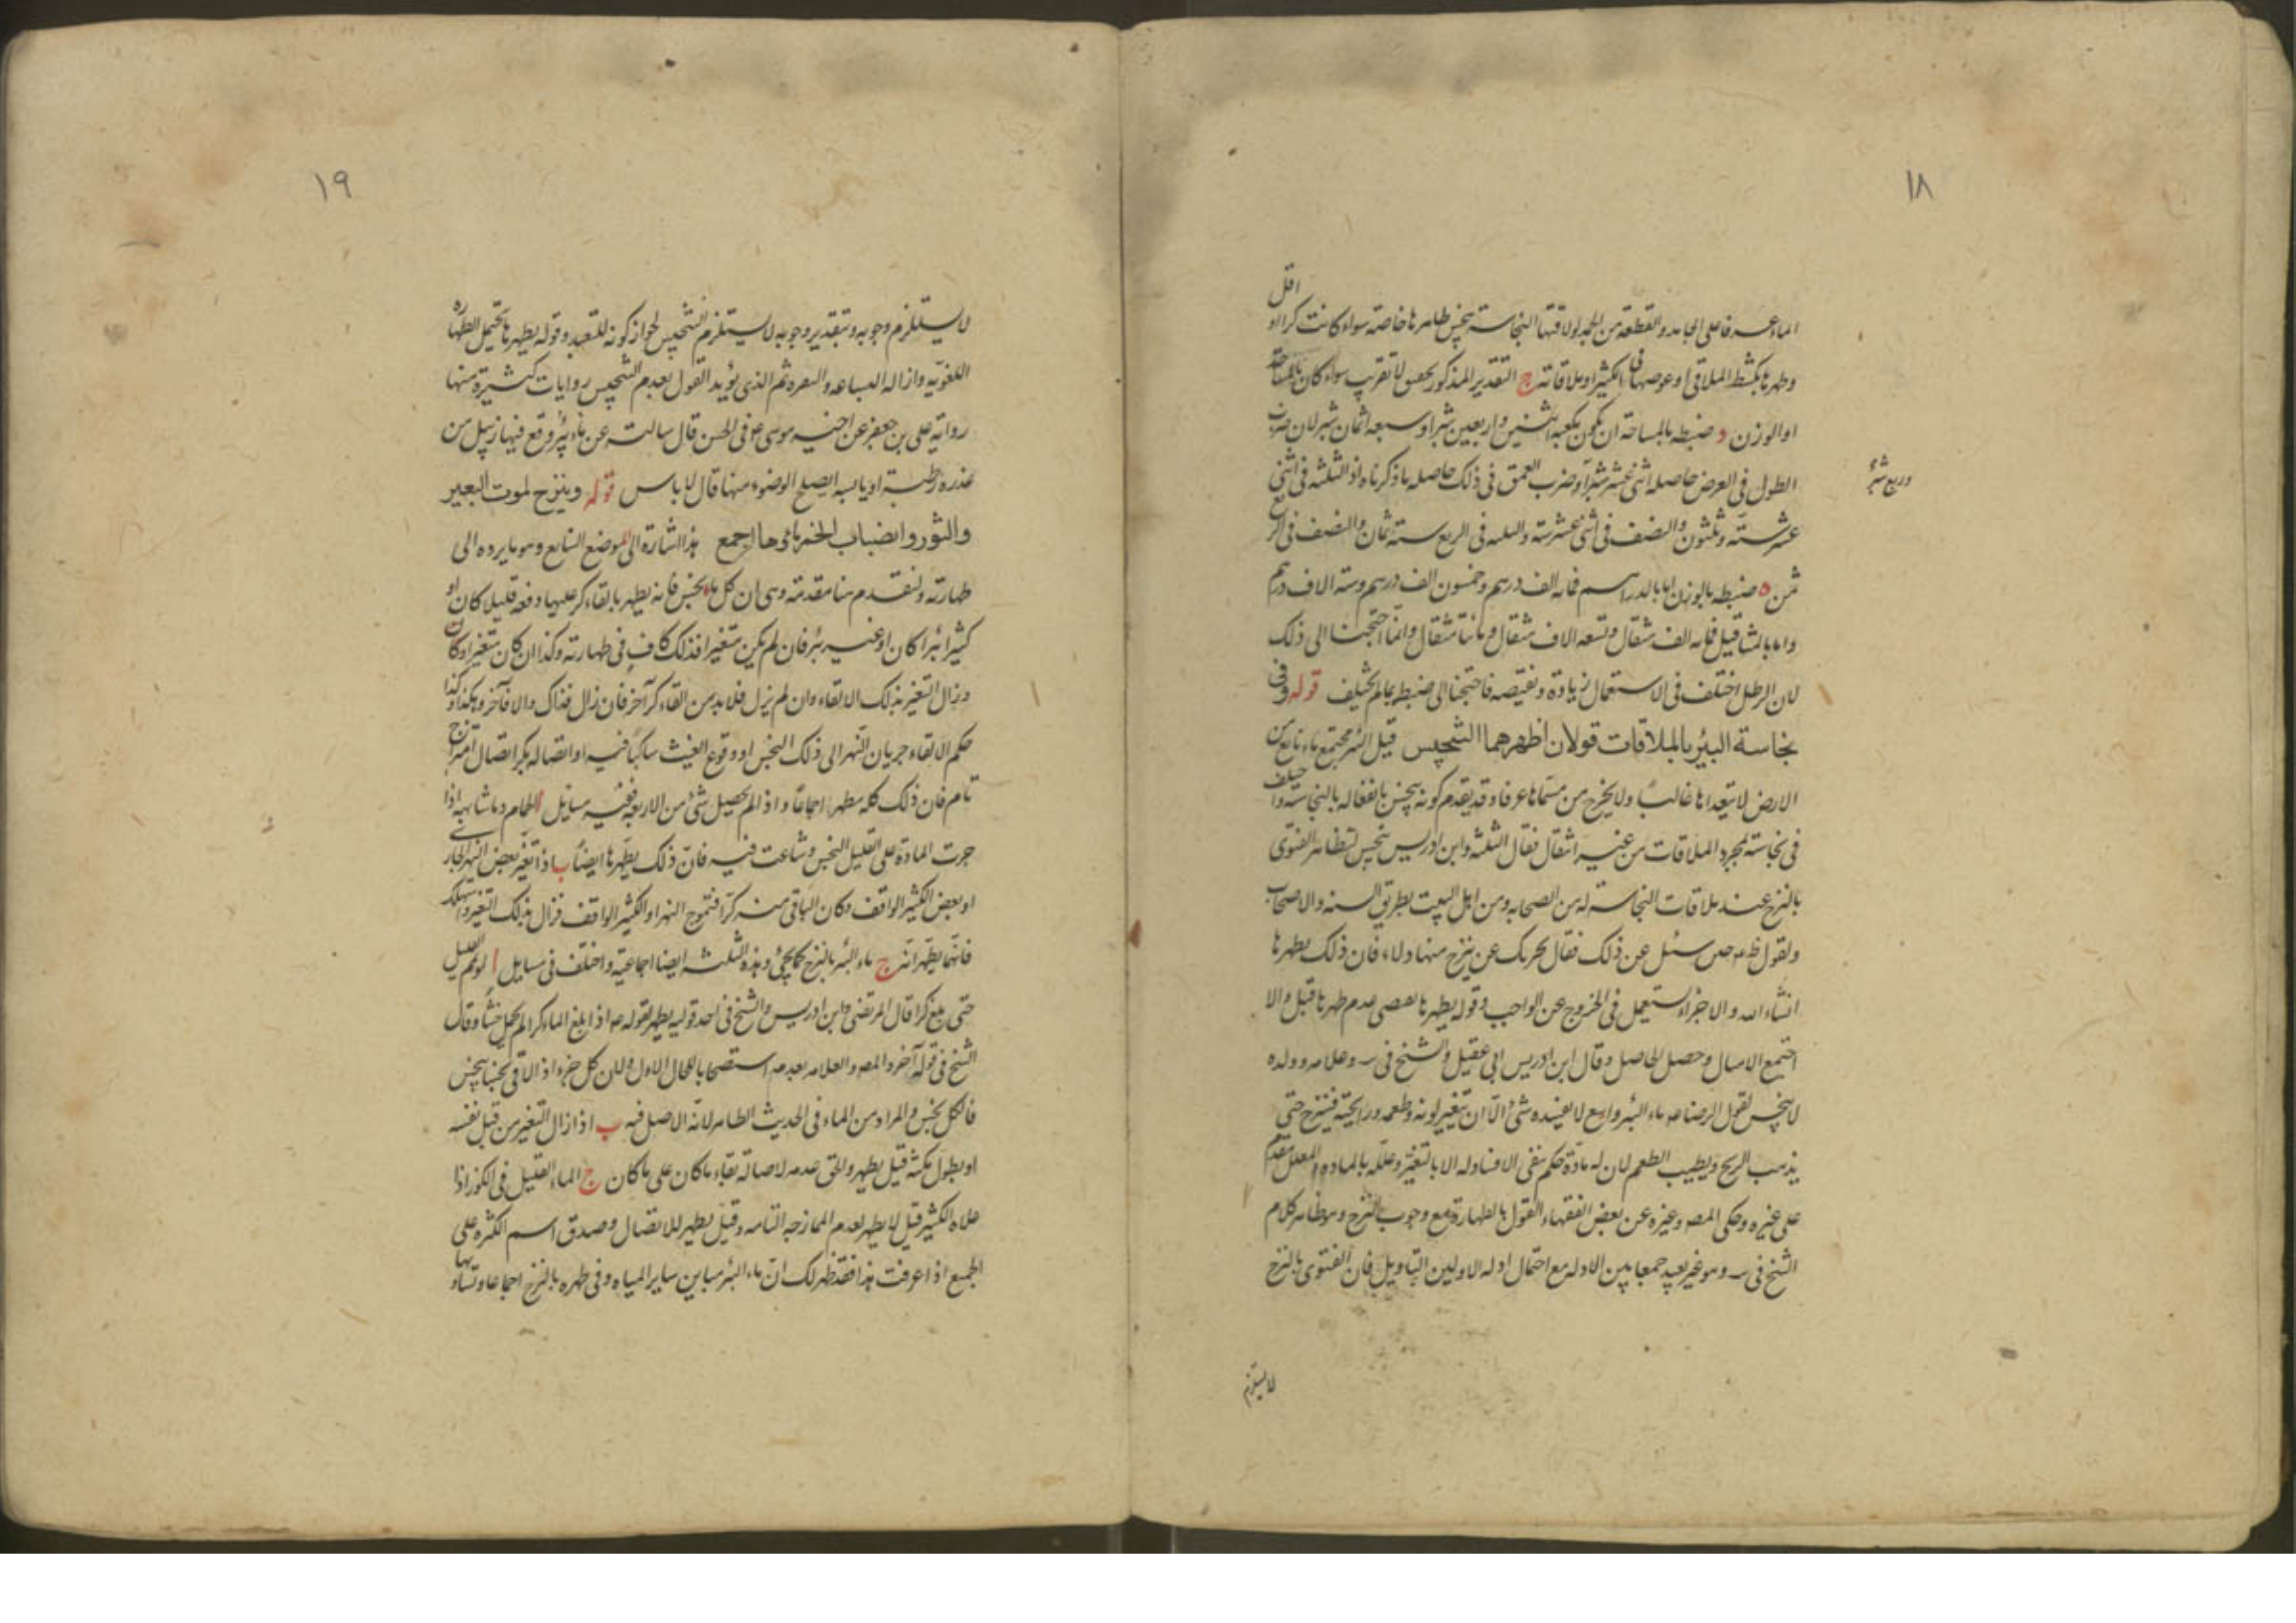 ١٨
اقل
الماء عرفا على الجامد والقطعة من الجمد لو لاقتها النجاسة نجس ظاهرها خاصة سواء كانت كرا او
وطهرها بكشط الملاقى او غوصها فى الكثير او ملاقاته ج التقدير المذكور تحقيق لا تقريب سواء كان بالمساحة
او الوزن د ضبطه بالمساحة ان يكون تكعيبه اثنين واربعين شبرا وسبعة اثمان شبر لان ضرب
الطول فى العرض حاصله اثنى عشر شبرا وضرب العمق فى ذلك حاصله ما ذكرناه اذ الثلثة فى اثنى
وربع شبر
عشر ستة وثلثون والنصف فى اثنى عشر ستة والثلثة فى الربع ستة اثمان والنصف فى الربع
ثمن ه ضبطه بالوزن اما بالدراهم فمائة الف درهم وخمسون الف درهم وستة الاف درهم
واما بالمثاقيل فمائة الف مثقال وتسعة الاف مثقال ومائتا مثقال وانما احتجنا الى ذلك
لان الرطل اختلف فى الاستعمال زيادة ونقيصه فاحتجنا الى ضبطه بما لم يختلف قوله وفى
نجاسة البئر بالملاقات قولان اظهرهما التنجيس قيل البئر مجتمع ماء نابع من
الارض لا يتعداها غالبا ولا يخرج من مسماها عرفا وقد يقدم كونه ينجس بانفعاله بالنجاسة واختلف
فى نجاسته بمجرد الملاقات من غير انتقال فقال الثلثة وابن ادريس ينجس لتظافر الفتوى
بالنزح عند ملاقات النجاسة له من الصحابه ومن اهل البيت بطريق السنه والاصحاب
ولقول سئل عن ذلك فقال يجزيك عن نزح منها دلاء فان ذلك يطهرها
انشاء الله والاجزاء يستعمل فى الخروج عن الواجب وقوله يطهرها يقتضى عدم طهرها قبل والا
اجتمع الامثال وحصل الحاصل وقال ابن ادريس ابى عقيل والشيخ فى وعلامه وولده
لا ينجس لقول الرضا ماء البئر واسع لا يفسده شئ الا ان يتغير لونه وطعمه ورايحته فينزح حتى
يذهب الريح ويطيب الطعم لان له مادة حكم بنفى الافساد له الا بالتغير وعلله بالمادة والمعلل مقدم
على غيره وحكى المص وغيره عن بعض الفقهاء القول بالطهارة مع وجوب النزح وهو ظاهر كلام
الشيخ فى وهو غير بعيد جمعا بين الادله مع احتمال ادلة الاولين التاويل فان الفتوى بالنزح
لا يستلزم
١٩
لا يستلزم وجوبه وبتقدير وجوبه لا يستلزم التنجيس لجواز كونه للتعبد وقوله يطهرها يحتمل الطهارة
اللغويه وازالة ثم الذى يؤيد القول بعدم التنجيس روايات كثيرة منها
رواية على بن جعفر عن اخيه موسى ابى الحسن قال سالت عن ماء بئر وقع فيها زنبيل من
عذره رطبة او يابسه ايصلح الوضوء منها قال لا باس قوله وينزح لموت البعير
والثور وانصباب الخمر ماؤها اجمع هذا اشارة الى الموضع السابع وهو ما يرده الى
طهارته ولنقدم هنا مقدمة وهى ان كل ماء نجس فانه يطهر بالقاء كر عليها دفعة قليلا كان او
كثيرا بئرا كان او غير بئر فان لم يكن متغيرا فذلك كاف فى طهارته وكذا ان كان متغيرا وكان
وزال التغير بذلك الالقاء وان لم يزل فلا بد من القاء كر آخر فان زال فذاك والا فآخر وهكذا وكذا
حكم الالقاء جريان النهر الى ذلك النجس او وقوع الغيث ساكبا فيه او اتصاله بكر اتصال امتزاج
تام فان ذلك كله مطهر اجماعا واذا لم يحصل شئ من الاربعه ففيه مسايل ا الحمام وما شابهه اذا
جرت المادة على القليل النجس وشاعت فيه فان ذلك يطهرها ايضا ب اذا تغير بعض النهر الجارى
او بعض الكثير الواقف وكان الباقى منه كرا فتموج النهر او الكثير الواقف فزال بذلك التغير واستهلك
فانهما يطهران ج ماء البئر بالنزح كما يجئ وهذه الثلثه ايضا اجماعية واختلف فى مسايل ا لو تمم القليل
حتى بلغ كرا قال المرتضى وابن ادريس والشيخ فى احد قوليه يطهر لقوله اذا بلغ الماء كرا لم يحمل خبثا وقال
الشيخ فى قوله آخر والمص والعلامه بعدمه استصحابا للحال الاول ولان كل جزء اذا لاقى نجسا ينجس
فالكل نجس والمراد من الماء فى الحديث الطاهر لانه الاصل فيه ب اذا زال التغير من قبل نفسه
او بطول مكثه قيل يطهر والحق عدمه لاصالة بقاء ما كان على ما كان ج الماء القليل فى الكوز اذا
علاه الكثير قيل لا يطهر لعدم الممازجه التامه وقيل يطهر للاتصال وصدق اسم الكثره على
الجميع اذا عرفت هذا فقد ظهر لك ان ماء البئر مباين ساير المياه وفى طهره بالنزح اجماعا وتساويها